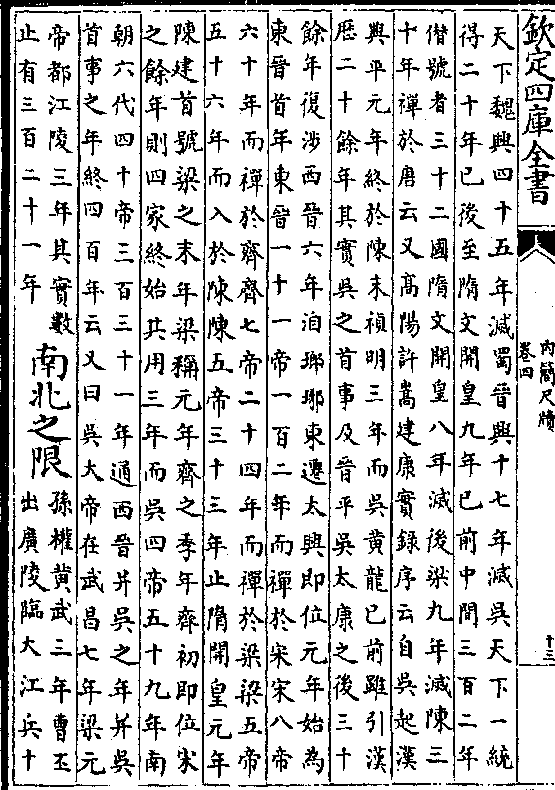 欽定四庫全書
內簡尺牘
卷四
十三
天下魏興四十五年滅蜀晉興十七年滅吳天下一統
得二十年已後至隋文開皇九年已前中間三百二年
僣號者三十二國隋文開皇八年滅後梁九年滅陳三
十年禪於唐云又髙陽許嵩建康實錄序云自吳起漢
興平元年終於陳末禎明三年而吳黄龍已前雖引漢
厯二十餘年其實吳之首事及晉平吳太康之後三十
餘年復渉西晉六年洎瑯琊東遷太興即位元年始為
東晉首年東晉一十一帝一百二年而禪於宋宋八帝
六十年而禪於齊齊七帝二十四年而禪於梁梁五帝
五十六年而入於陳陳五帝三十三年止隋開皇元年
陳建首號梁之末年梁稱元年齊之季年齊初即位宋
之餘年則四家終始共用三年而吳四帝五十九年南
朝六代四十帝三百三十一年通西晉并吳之年并吳
首事之年終四百年云又曰吳大帝在武昌七年梁元
帝都江陵三年其實數
止有三百二十一年
南北之限
孫權黄武三年曹丕
出廣陵臨大江兵十